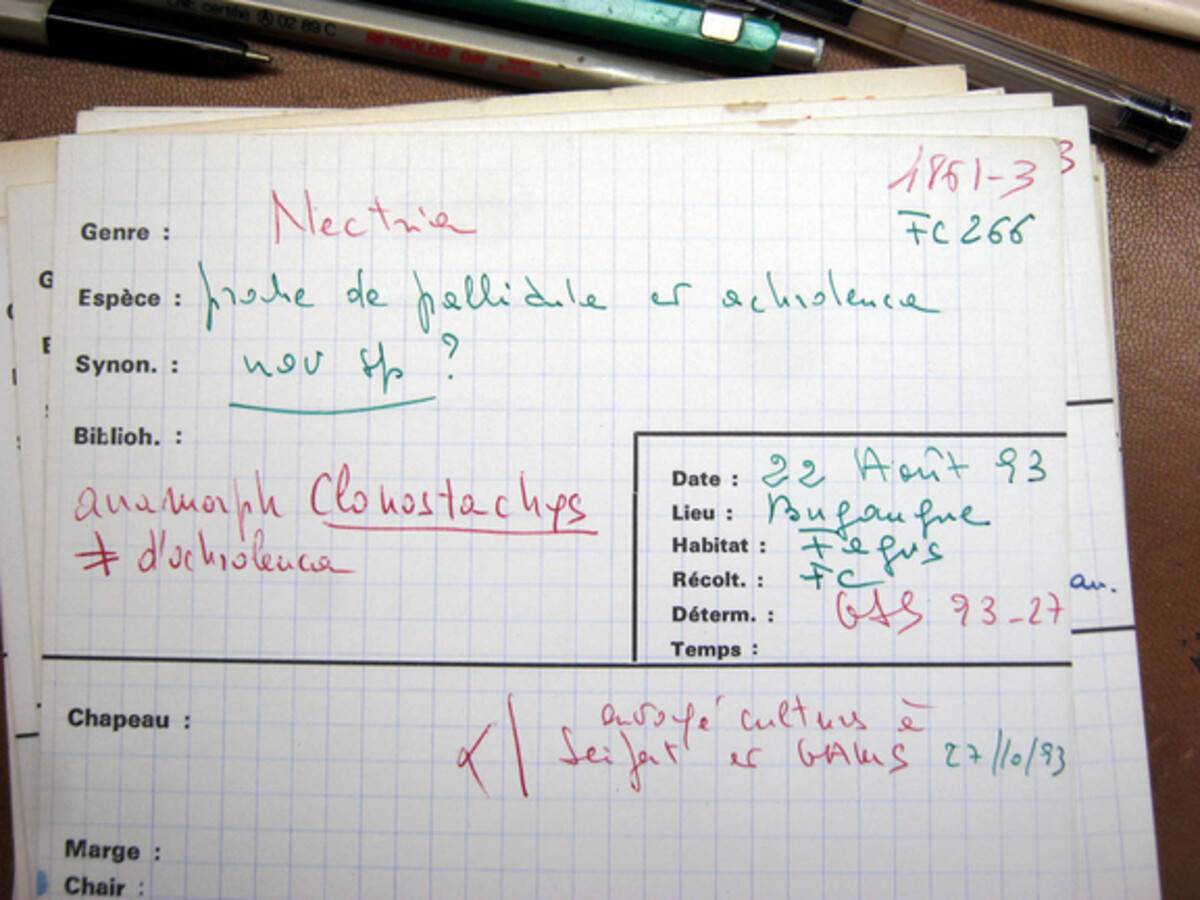 02 89 C
REYNOLDS
1861-3
3
FC 266
Genre : Nectria
Espèce : proche de pallidula et ochroleuca
Synon. : nov sp ?
Biblioh. :
anamorph Clonostachys
≠ d'ochroleuca
Date : 22 Août 93
Lieu : Bugangue
Habitat : Fagus
Récolt. : FC
Déterm. : GJS 93-27
Temps :
au.
Chapeau :
envoyé cultures à
Seifert et GAMS 27/10/93
Marge :
Chair :